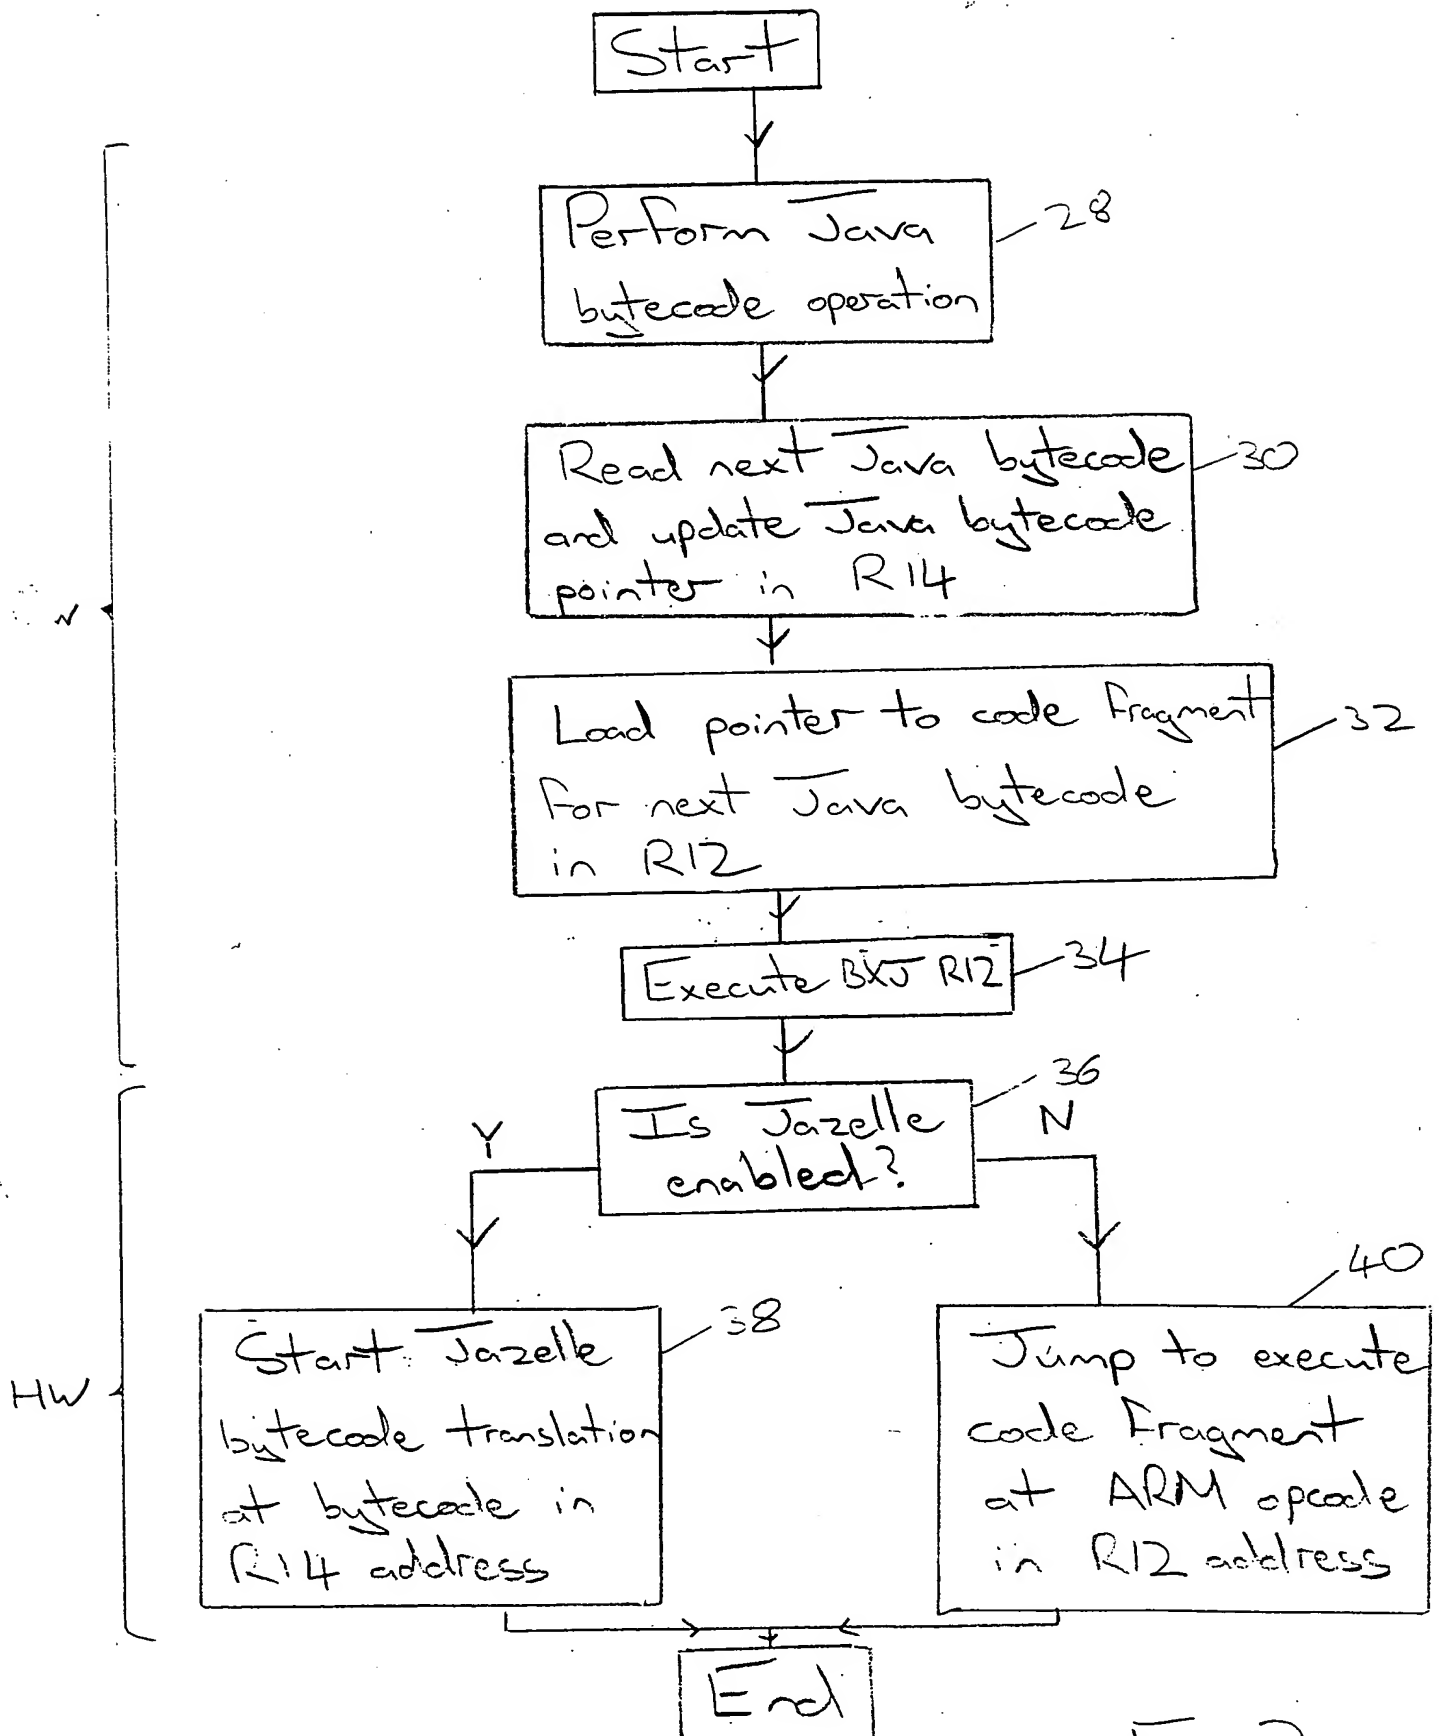 Start
Perform Java
bytecode operation
28
Read next Java bytecode
and update Java bytecode
pointer in R14
30
Load pointer to code fragment
for next Java bytecode
in R12
32
Execute BXJ R12
34
Is Jazelle
enabled?
36
Y
N
HW
Start Jazelle
bytecode translation
at bytecode in
R14 address
38
Jump to execute
code fragment
at ARM opcode
in R12 address
40
End